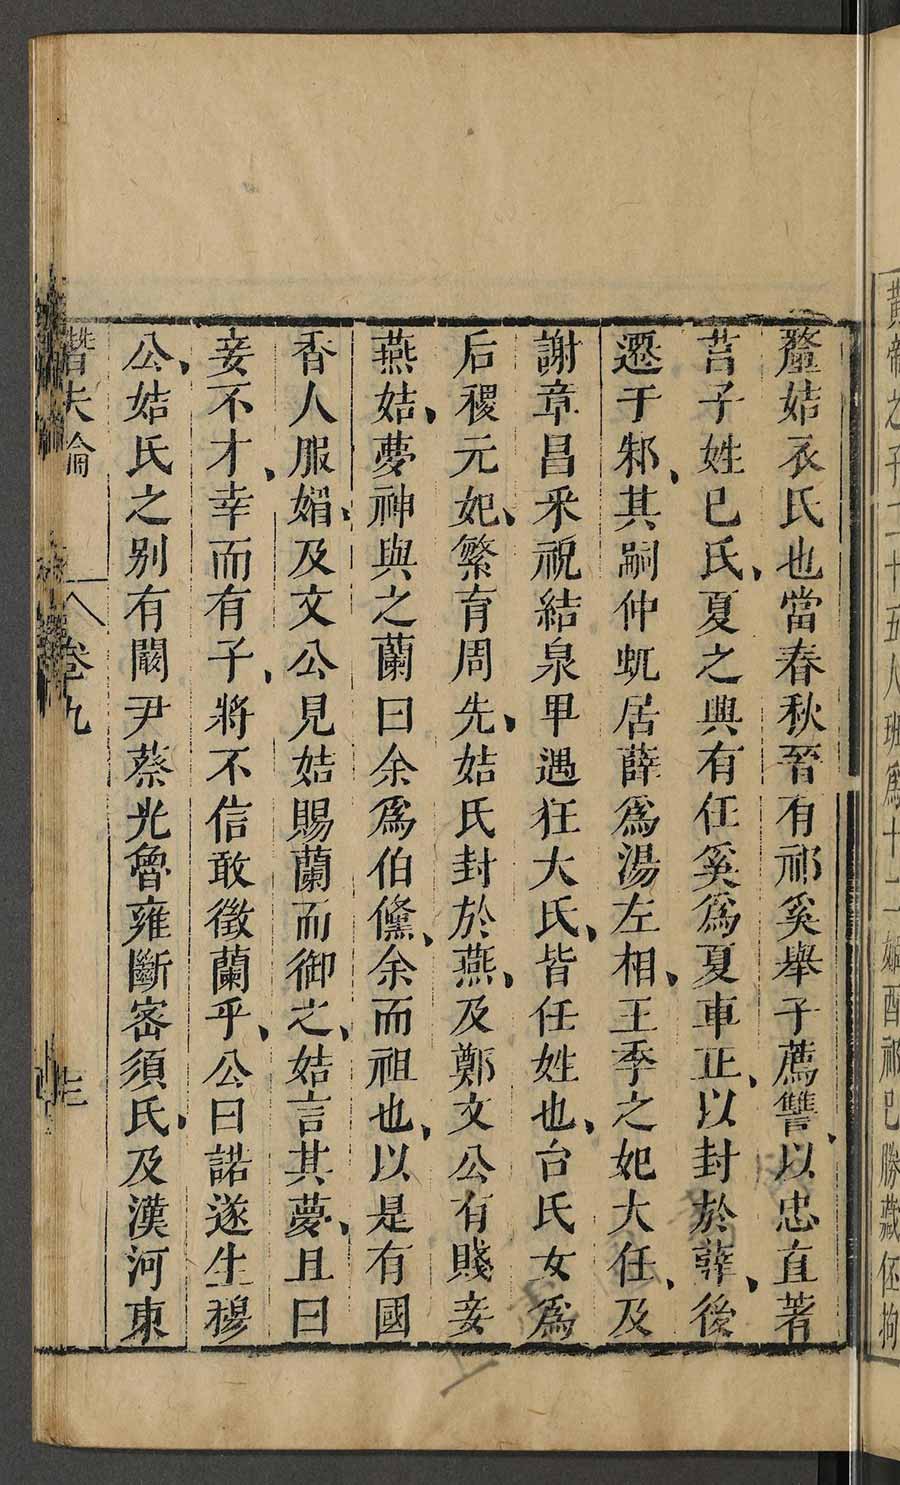 黃帝之子二十五人班爲十二姬酉祁巳勝葴任拘
釐姞衣氏也當春秋晉有祁奚舉子薦讐、以忠直著
莒子姓巳氏、夏之興有任奚爲夏車正、以封於薛、後
遷于邳、其嗣仲虺居薛爲湯左相、王季之妃大任、及
謝章昌釆祝結泉卑遇狂大氏、皆任姓也、台氏女爲
后稷元妃、繁育周先、姞氏封於燕、及鄭文公有賤妾
燕姞、夢神與之蘭曰余爲伯儵、余而祖也、以是有國
香人服媚、及文公見姞賜蘭而御之、姞言其夢、且曰
妾不才、幸而有子、將不信敢徵蘭乎、公曰諾遂生穆
公、姞氏之别有闞尹蔡光魯雍斷密須氏、及漢河東
潛夫論 卷九